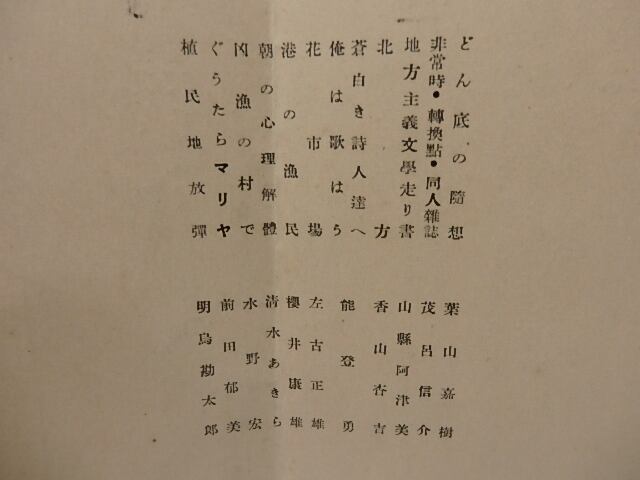 どん底の隨想
非常時・轉換點・同人雜誌
地方主義文學走り書
北方
蒼白き詩人達へ
俺は歌はう
花市場
港の漁民
朝の心理解體
凶漁の村で
ぐうたらマリヤ
植民地放彈
葉山嘉樹
茂呂信介
山縣阿津美
香山杏吉
能登勇
左古正雄
櫻井康雄
清水あきら
水野宏
前田郁美
明烏勘太郎